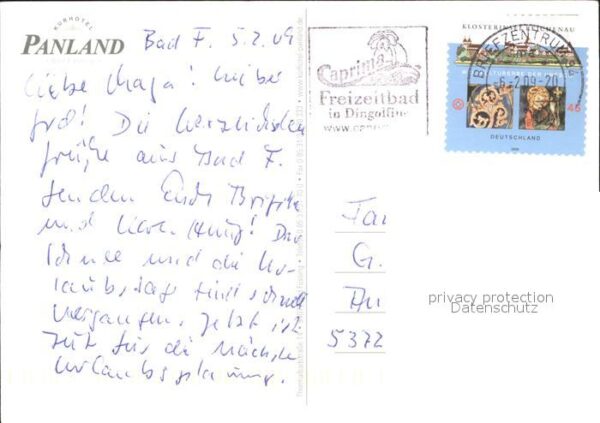 KURHOTEL
PANLAND
Bad F. 5.2.09
Liebe Maja! Lieber
Fred! Die herzlichsten
Grüße aus Bad F.
senden Euch Brigitte
und Hans Jürg! Der
Schnee und die Ur-
laubstage sind schnell
vergangen. Jetzt ist
Zeit für die nächste
Urlaubsplanung.
Caprima
Freizeitbad
in Dingolfin
www.capri
KLOSTERINSEL REICHENAU
BRIEFZENTRUM 94
-6.2.09-20
45
DEUTSCHLAND
Fa
G.
An
5372
privacy protection
Datenschutz